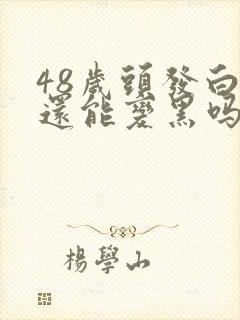 48歲頭發白
還能變黑嗎
楊學山